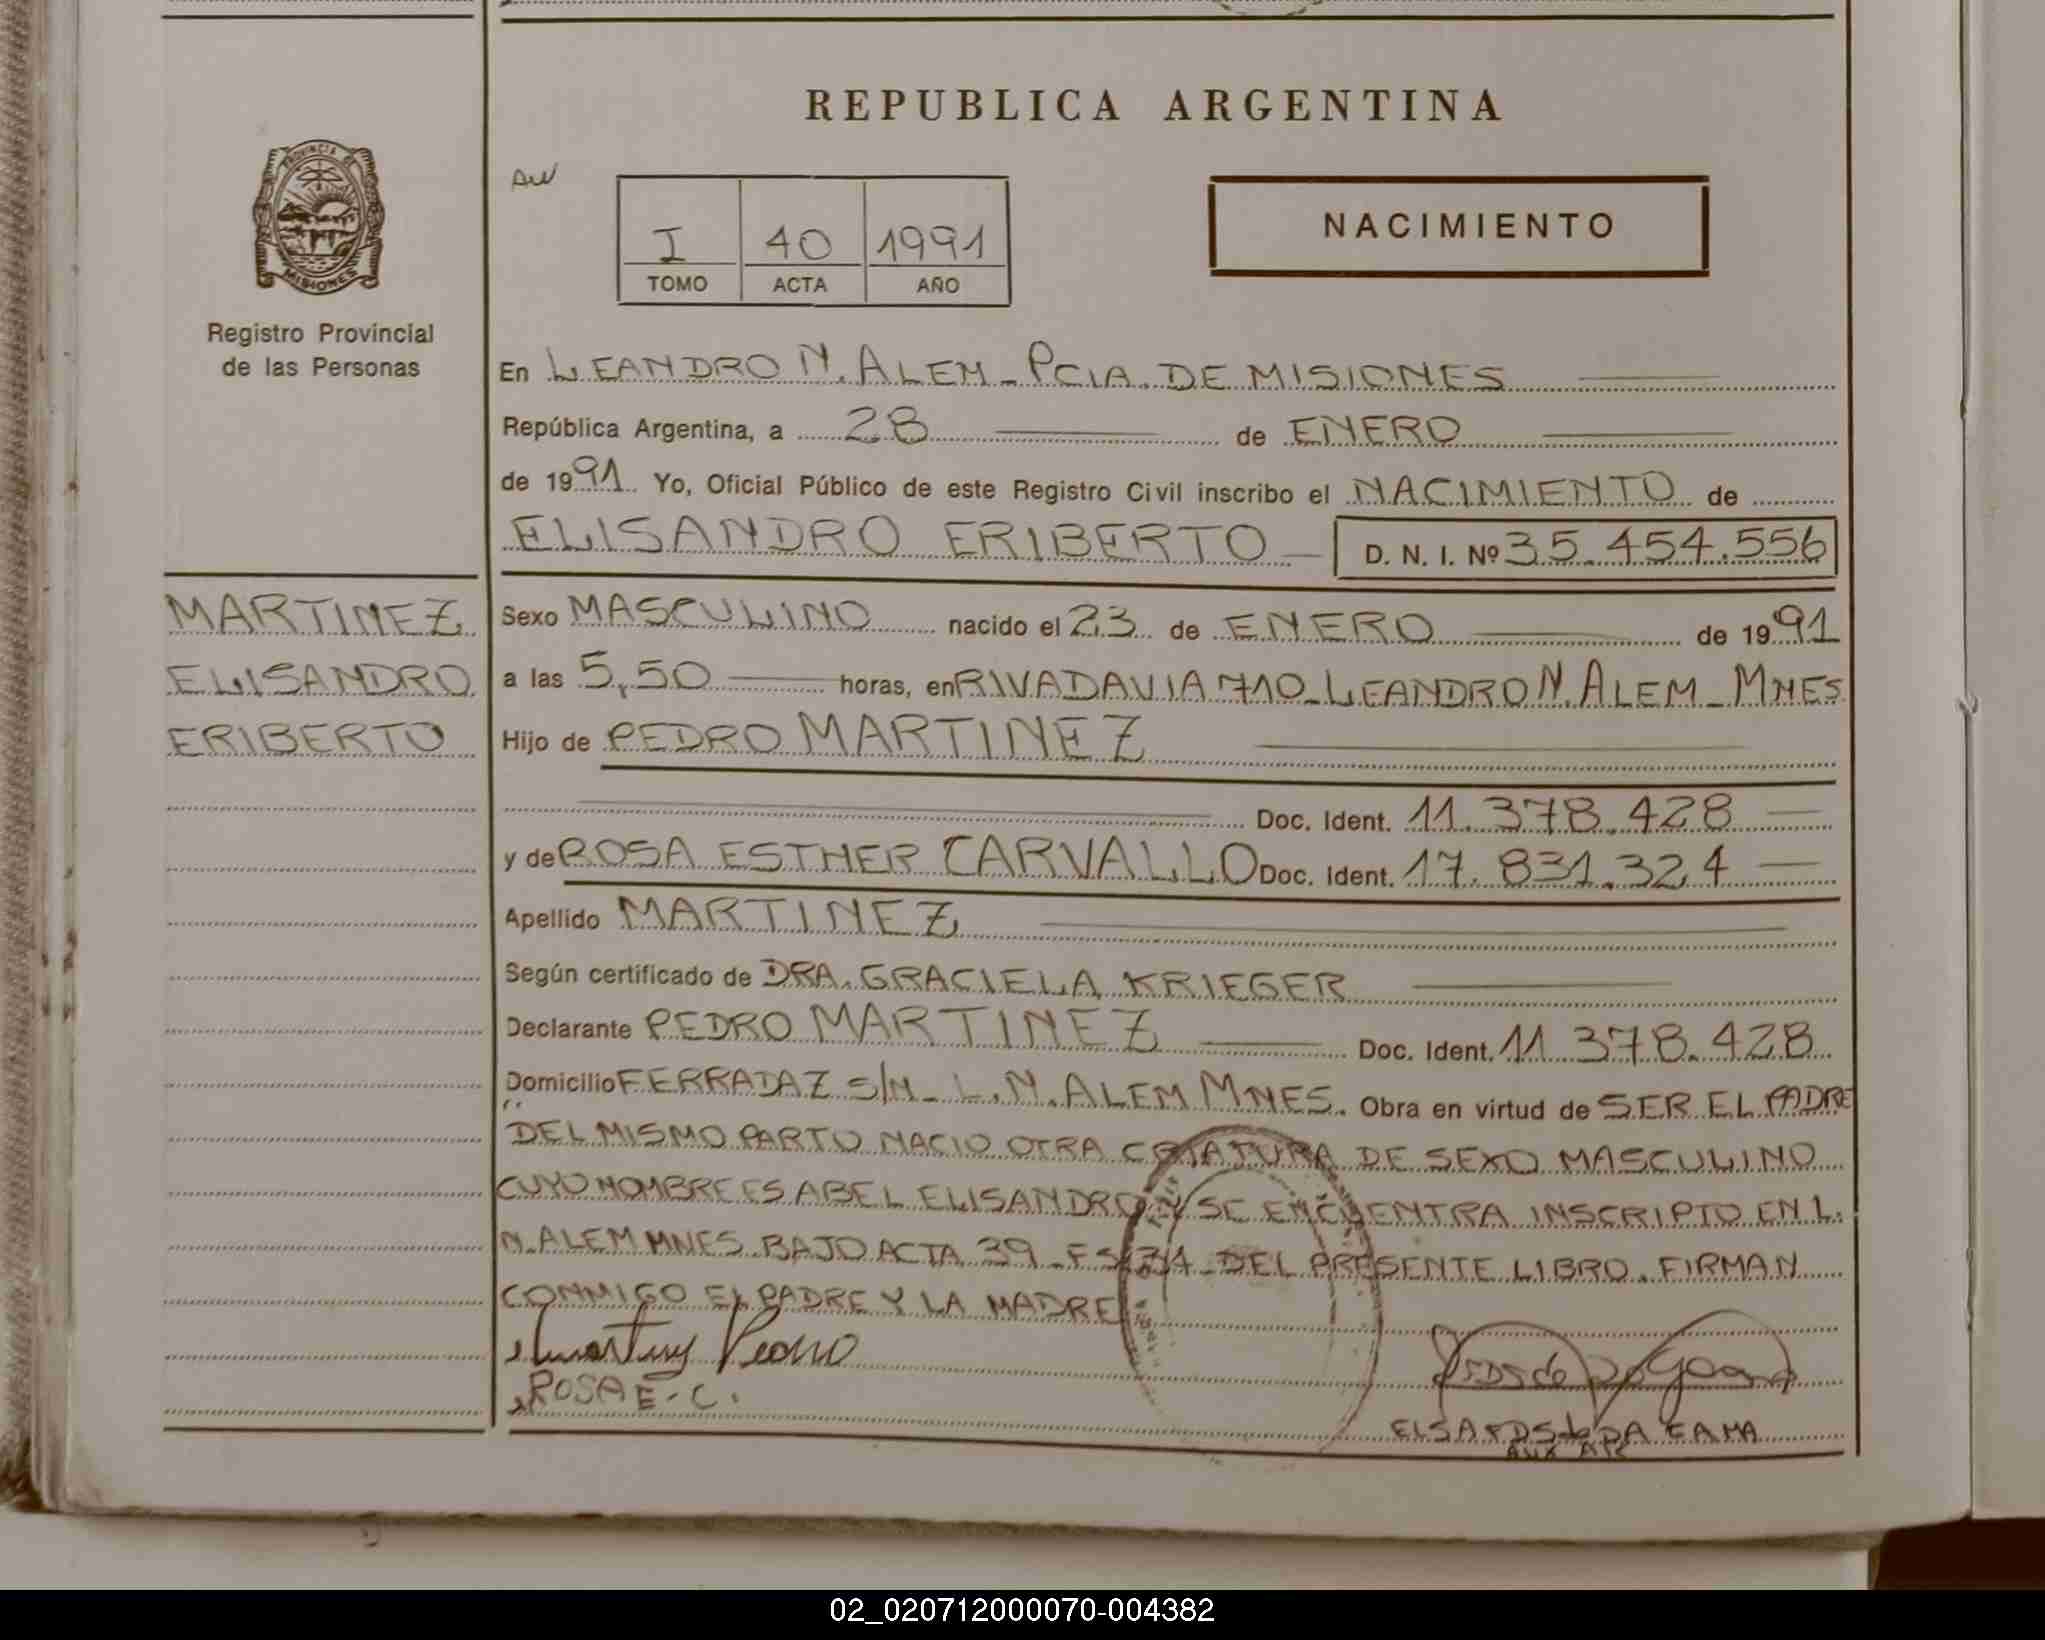 REPUBLICA ARGENTINA
PROVINCIA DE
MISIONES
Registro Provincial
de las Personas
I 40 1991
TOMO ACTA AÑO
NACIMIENTO
En LEANDRO N. ALEM - PCIA. DE MISIONES
República Argentina, a 28 de ENERO
de 1991 Yo, Oficial Público de este Registro Civil inscribo el NACIMIENTO de
ELISANDRO ERIBERTO D. N. I. Nº 35.454.556
MARTINEZ
ELISANDRO
ERIBERTO
Sexo MASCULINO nacido el 23 de ENERO de 1991
a las 5,50 horas, en RIVADAVIA 710 - LEANDRO N. ALEM - MNES
Hijo de PEDRO MARTINEZ
Doc. Ident. 11.378.428
y de ROSA ESTHER CARVALLO Doc. Ident. 17.831.324
Apellido MARTINEZ
Según certificado de DRA. GRACIELA KRIEGER
Declarante PEDRO MARTINEZ Doc. Ident. 11.378.428
Domicilio FERRADAZ S/N - L. N. ALEM MNES. Obra en virtud de SER EL PADRE
"DEL MISMO PARTO NACIO OTRA CRIATURA DE SEXO MASCULINO
CUYO NOMBRE ES ABEL ELISANDRO Y SE ENCUENTRA INSCRIPTO EN L.
N. ALEM MNES. BAJO ACTA 39 - FS DEL PRESENTE LIBRO. FIRMAN
CONMIGO EL PADRE Y LA MADRE
Martinez Pedro
ROSA E. C.
ELSA DA GAMA
02_020712000070-004382